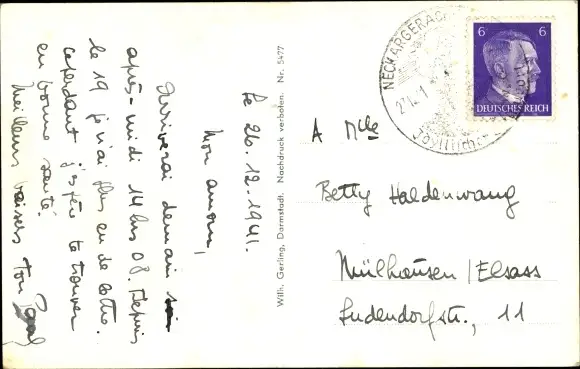 Le 26.12.1941.
Mon amour,
Arriverai demain
après-midi 14 hrs 08. Depuis
le 19 j'ai plus eu de lettre.
cependant j'espère te trouver
en bonne santé.
Meilleurs baisers ton
Wilh. Gerling, Darmstadt. Nachdruck verboten. Nr. 5477
NECKARGERACH
27.12.41
Idyllischer
6 6
DEUTSCHES REICH
A Mlle
Betty Haldenwang
Mülhausen /Elsass
Ludendorfstr., 11